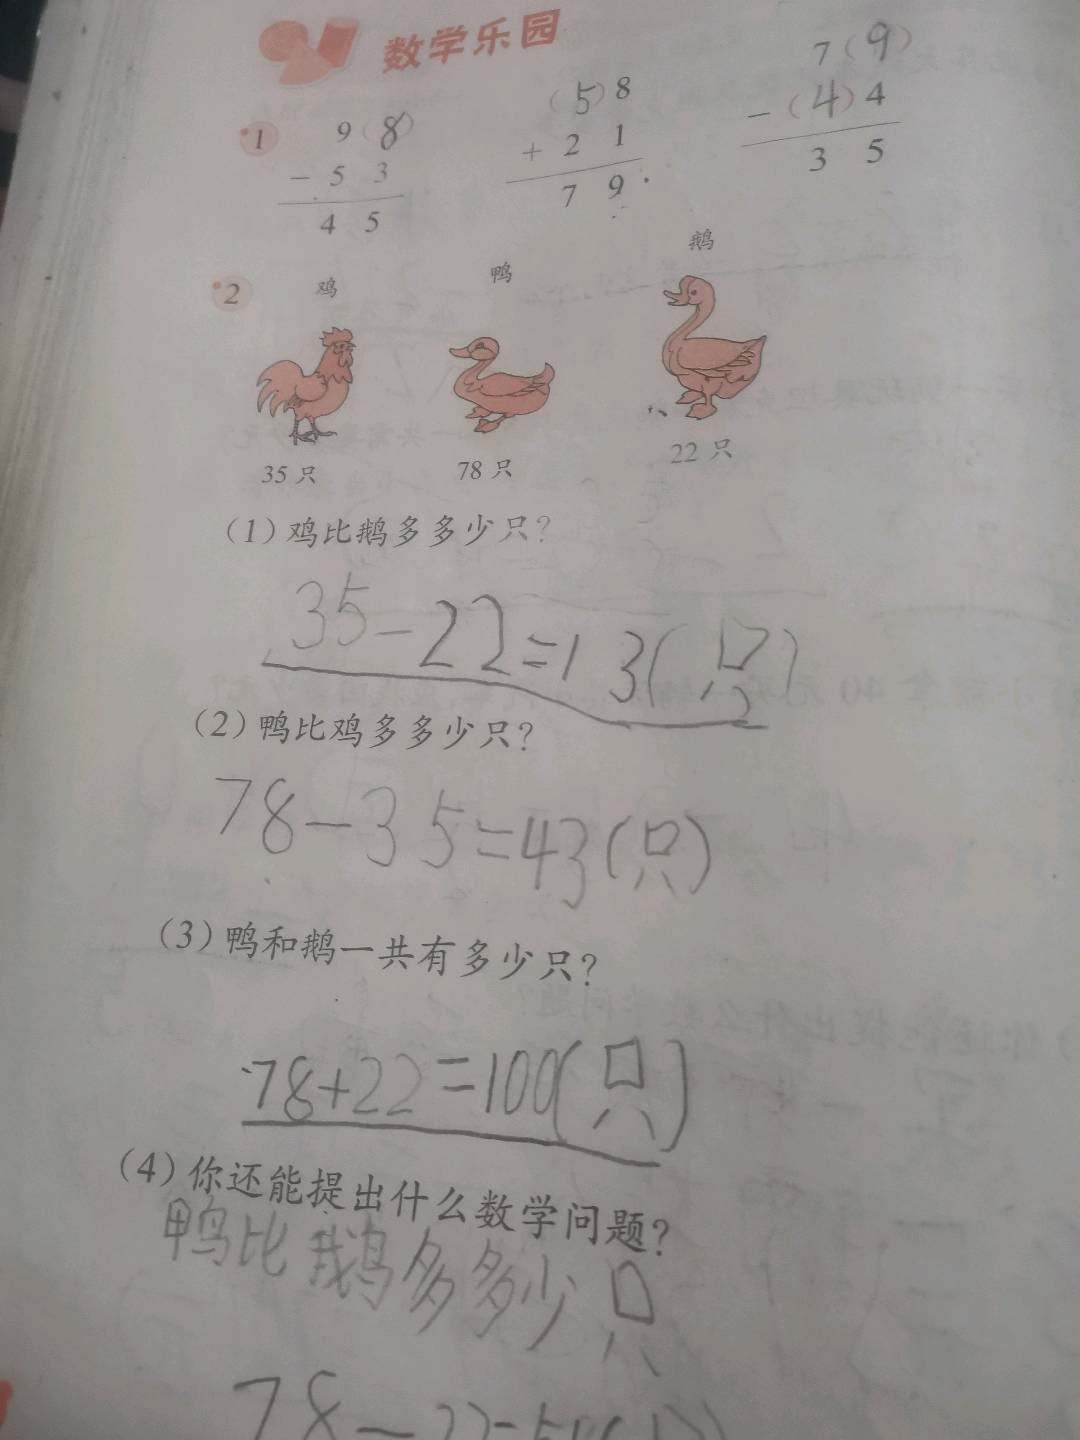 数学乐园
1
9(8)
- 5 3
4 5
(5)8
+ 2 1
7 9
7(9)
- (4)4
3 5
2
鸡 鸭 鹅
35只 78只 22只
(1)鸡比鹅多多少只?
35-22=13(只)
(2)鸭比鸡多多少只?
78-35=43(只)
(3)鸭和鹅一共有多少只?
78+22=100(只)
(4)你还能提出什么数学问题?
鸭比鹅多多少只
78-22=5